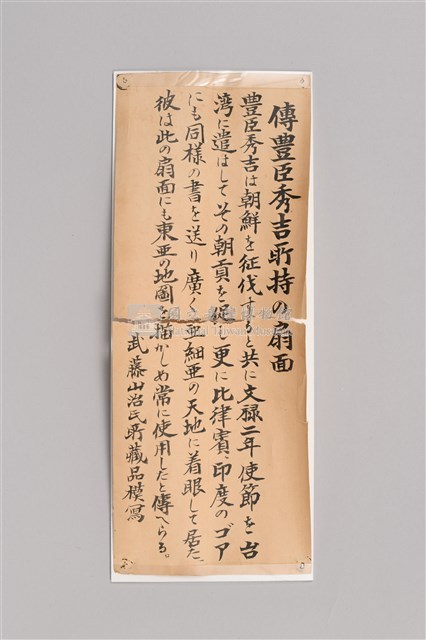 傳豊臣秀吉所持の扇面
豊臣秀吉は朝鮮を征伐すると共に文禄二年使節を台
湾に遣はしてその朝貢を促し更に比律賓、印度のゴア
にも同様の書を送り廣く亜細亜の天地に着眼して居た、
彼は此の扇面にも東亜の地圖を描かしめ常に使用したと傳へらる。
武藤山治氏所蔵品模寫
National Taiwan Museum